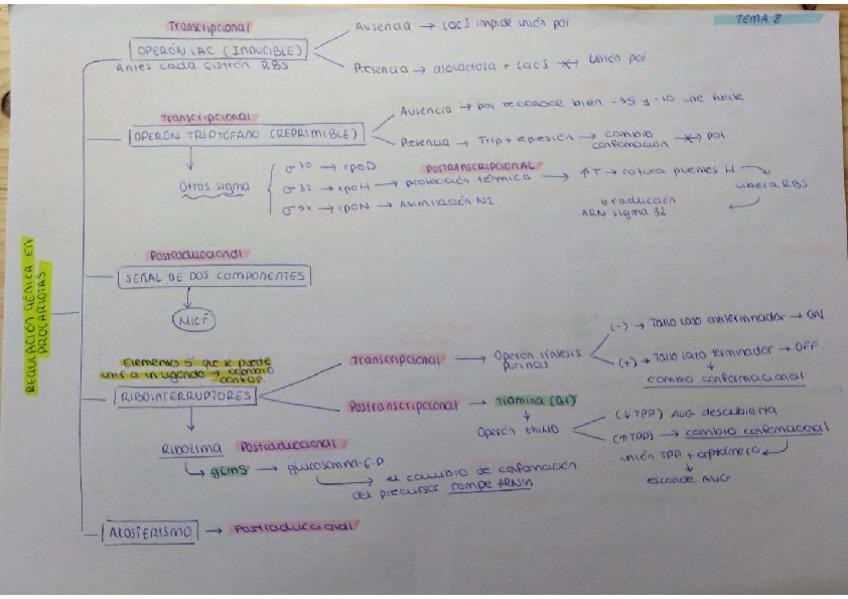 TEMA 8
REGULACIÓN GÉNICA EN
PROCARIOTAS
Transcripcional
OPERÓN LAC (INDUCIBLE)
Antes cada cistrón RBS
Ausencia → lacI impide unión pol
Presencia → alolactosa + lacI unión pol
Transcripcional
OPERÓN TRIPTÓFANO (REPRIMIBLE)
Ausencia → pol reconoce bien -35 y -10 une fuerte
Presencia → Trip + → cambio
pol
Otros sigma
σ 70 → rpoD
σ 32 → rpoH → protección térmica → ↑T → rotura puentes H
POSTRANSCRIPCIONAL
libera RBS
traducción
ARN sigma 32
→ rpoN → Asimilación N2
Postraduccional
SEÑAL DE DOS COMPONENTES
MicF
Elemento 5' que se puede
unir a un ligando → cambio
RIBOINTERRUPTORES
Transcripcional → Operón síntesis
purinas
(-) → Tallo lazo antiterminador → ON
(+) → Tallo lazo terminador → OFF
cambio conformacional
Postranscripcional → Tiamina (B1)
Operón
(↓ TPP) AUG descubierta
(↑ TPP) → cambio conformacional
unión TPP + aptámero
esconde AUG
Ribozima Postraduccional
glmS → glucosamina-6-P
→ el cambio de conformación
del precursor rompe ARNm
ALOSTERISMO → Postraduccional